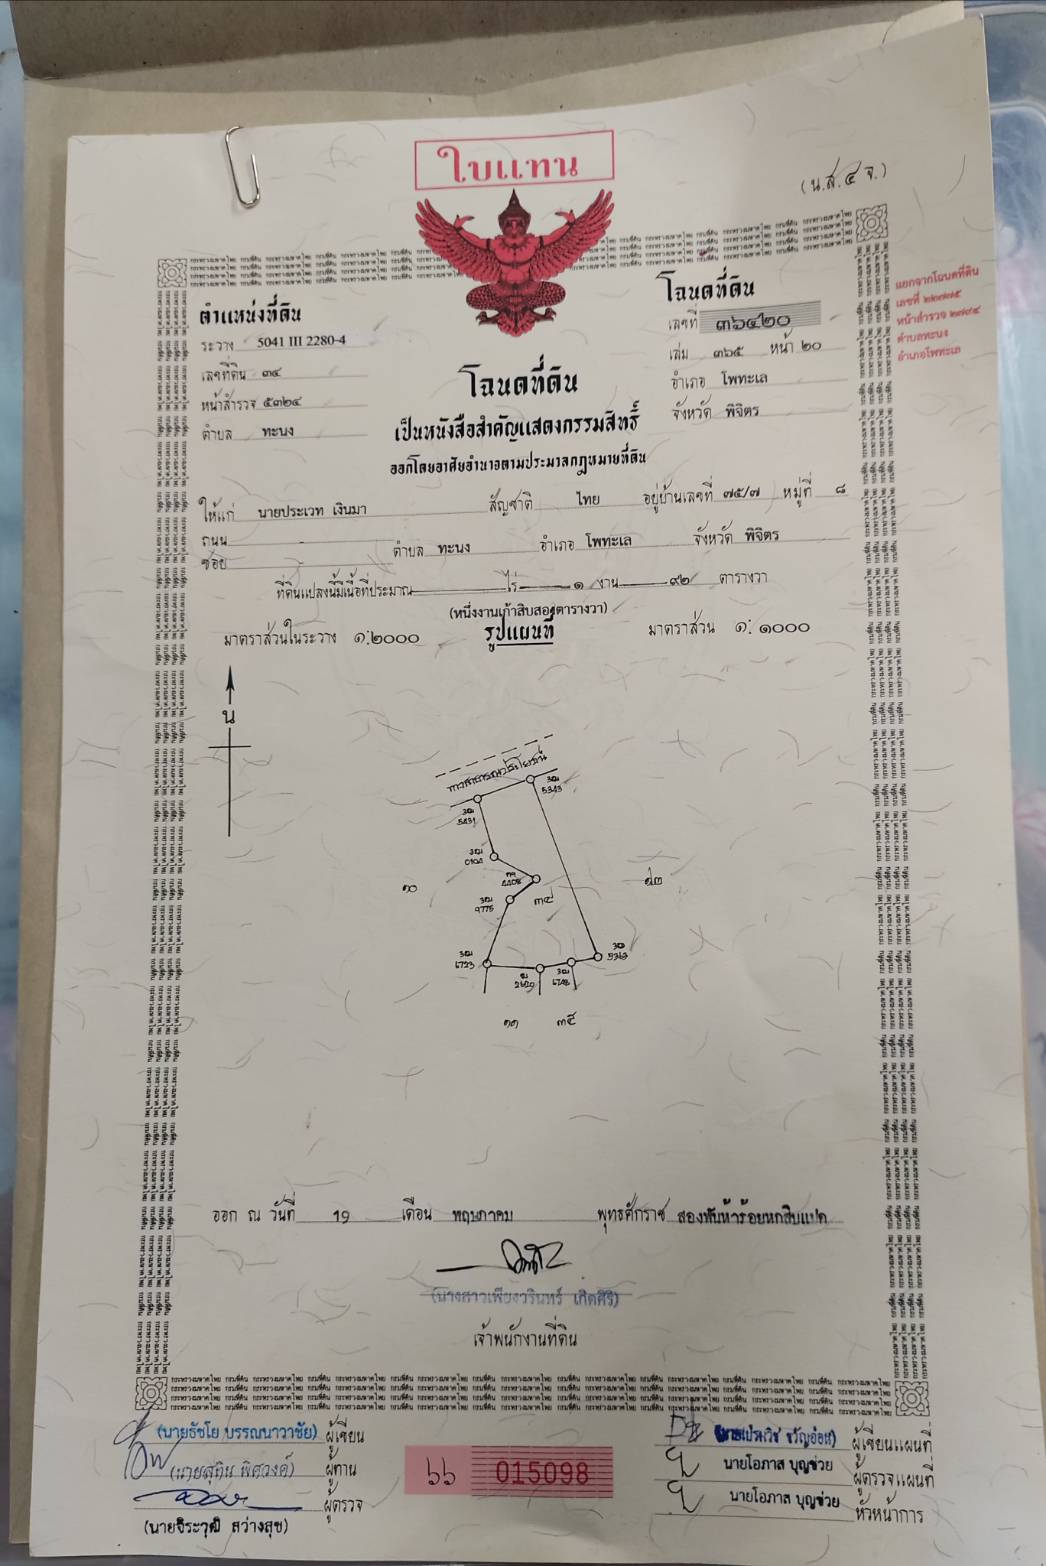 ใบแทน
(น.ส.๔ จ.)
ตำแหน่งที่ดิน
ระวาง 5041 III 2280-4
เลขที่ดิน ๓๔
หน้าสำรวจ ๕๓๒๔
ตำบล ทะนง
โฉนดที่ดิน
เลขที่ ๓๖๔๒๐
เล่ม ๓๖๕ หน้า ๒๐
อำเภอ โพทะเล
จังหวัด พิจิตร
แยกจากโฉนดที่ดิน
ตำบลทะนง
อำเภอโพทะเล
โฉนดที่ดิน
เป็นหนังสือสำคัญแสดงกรรมสิทธิ์
ออกโดยอาศัยอำนาจตามประมวลกฎหมายที่ดิน
ให้แก่ นายประเวท เงินมา สัญชาติ ไทย อยู่บ้านเลขที่ ๗๕/๗ หมู่ที่ ๘
ถนน - ตำบล ทะนง อำเภอ โพทะเล จังหวัด พิจิตร
ซอย
ที่ดินแปลงนี้มีเนื้อที่ประมาณ - ไร่ ๑ งาน ๙๒ ตารางวา
(หนึ่งงานเก้าสิบสองตารางวา)
มาตราส่วนในระวาง ๑:๒๐๐๐ รูปแผนที่ มาตราส่วน ๑: ๑๐๐๐
น
ทางสาธารณประโยชน์
๑๐
๓๔
๑๒
๑๑
๓๕
ออก ณ วันที่ 19 เดือน พฤษภาคม พุทธศักราช สองพันห้าร้อยหกสิบแปด
(นางสาวเพียงวรินทร์ เกิดศิริ)
เจ้าพนักงานที่ดิน
(นายธัชโย บรรณนาวาชัย) ผู้เขียน
ผู้ทาน
ผู้ตรวจ
(นายจิระวุฒิ สว่างสุข)
๖๖ 015098
ผู้เขียนแผนที่
นายโอภาส บุญช่วย ผู้ตรวจแผนที่
นายโอภาส บุญช่วย หัวหน้าการ